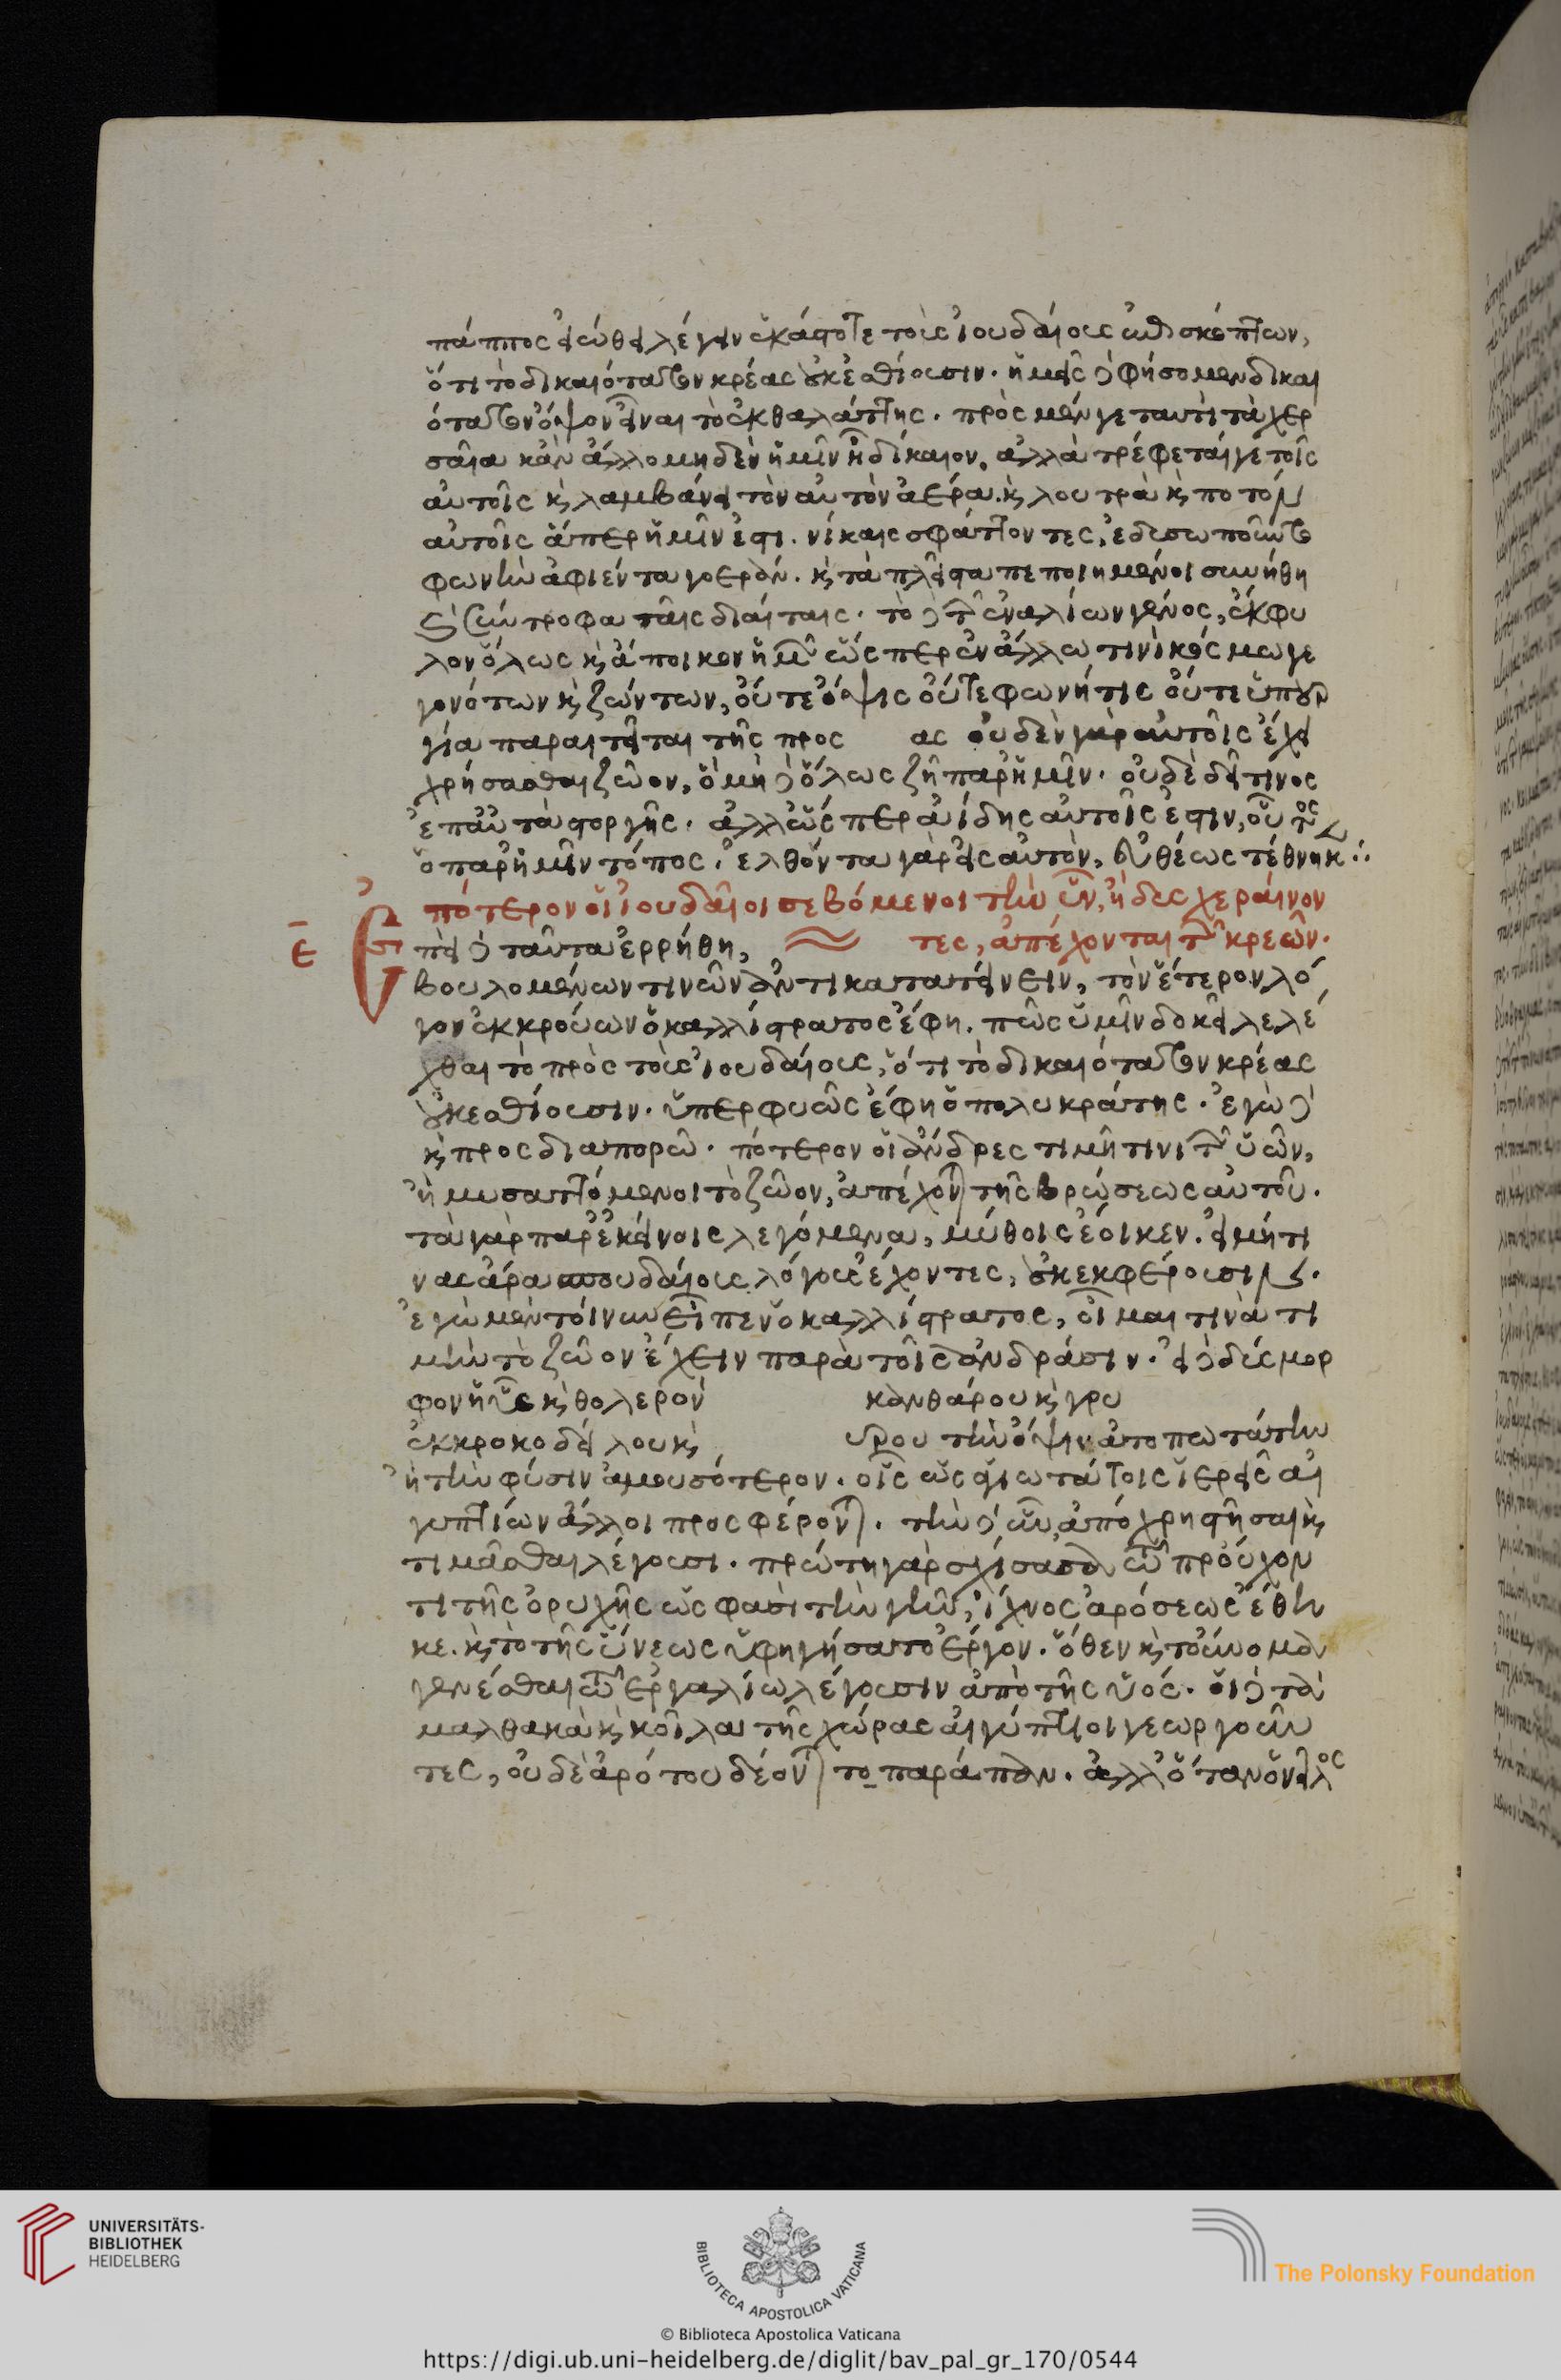 πάππος εἰώθει λέγειν ἑκάστοτε τοὺς ἰουδαίους ἐπισκώπτων,
ὅτι τὸ δικαιότατον κρέας οὐκ ἐσθίουσιν. ἡμεῖς δὲ φήσομεν δικαι
ότατον ὄψον εἶναι τὸ ἐκ θαλάττης. πρὸς μέν γε ταυτὶ τὰ χερ
σαῖα κἂν ἄλλο μηδὲν ἡμῖν ἦ δίκαιον, ἀλλὰ τρέφεταί γε τοῖς
αὐτοῖς κ λαμβάνει τὸν αὐτὸν ἀέρα. κ λουτρὰ κ ποτὸν
αὐτοῖς ἅπερ ἡμῖν ἐστι.
φωνὴν ἀφιέντα γοερὰν. κ τὰ πλεῖστα πεποιημένοι συνήθη
κ σύντροφα ταῖς διαίταις. τὸ δὲ τῶν ἐναλίων γένος, ἔκφυ
λον ὅλως κ ἄποικον ἡμῶν ὥσπερ ἐν ἄλλω τινὶ κόσμω γε
γονότων κ ζώντων, οὔτε ὄψις οὔτε φωνή τις οὔτε ὑπουρ
γία παραιτεῖται τῆς προς ας οὐδὲν γὰρ αὐτοῖς ἔχει
χρήσασθαι ζῶον, ὃ μὴ δὲ ὅλως ζῆ παρ' ἡμῖν. οὐδὲ δεῖ τινος
ἐπ' αὐτὰ στοργῆς. ἀλλ' ὥσπερ ἀίδης αὐτοῖς ἐστιν, οὗτος
ὁ παρ' ἡμῖν τόπος. ἐλθόντα γὰρ εἰς αὐτὸν, εὐθέως τέθνηκ:
πότερον οἱ ἰουδαῖοι σεβόμενοι τὴν ὗν, ἢ δυσχεραίνον
τες, ἀπέχονται τῶν κρεῶν.
ε Ἐπεὶ δὲ ταῦτα ἐρρήθη,
βουλομένων τινῶν ἀντικατατείνειν, τὸν ἕτερον λό
γον ἐκκρούων ὁ καλλίστρατος ἔφη. πῶς ὑμῖν δοκεῖ λελέ
χθαι τὸ πρὸς τοὺς ἰουδαίους, ὅτι τὸ δικαιότατον κρέας
οὐκ ἐσθίουσιν. ὑπερφυῶς ἔφη ὁ πολυκράτης. ἐγὼ δὲ
κ προςδιαπορῶ. πότερον οἱ ἄνδρες τιμῆ τινι τῶν ὑῶν,
ἢ μυσαττόμενοι τὸ ζῶον, ἀπέχονται τῆς βρώσεως αὐτοῦ.
τὰ γὰρ παρ' ἐκείνοις λεγόμενα, μύθοις ἔοικεν. εἰ μή τι
νας ἄρα σπουδαίους λόγους ἔχοντες, οὐκ ἐκφέρουσιν.
ἐγὼ μὲν τοίνυν εἶπεν ὁ καλλίστρατος, οἶμαι τινὰ τι
μὴν τὸ ζῶον ἔχειν παρὰ τοῖς ἀνδράσιν. εἰ δὲ δύσμορ
φον ἡ ὗς κ θολερὸν κανθάρου κ γρυ
ἐκ κροκοδείλου κ ὑρου τὴν ὄψιν ἀτοπωτάτην
ἢ τὴν φύσιν ἀμουσότερον. οἷς ὡς ἁγιωτάτοις ἱερεῖς αἰ
γυπτίων ἄλλοι προσφέρονται. τὴν δὲ ὗν ἀπὸ χρηστῆς αι κ
τιμᾶσθαι λέγουσι. πρώτη γὰρ σχίσασα τῶ προύχον
τι τῆς ὀρυχῆς ὥς φασὶ τὴν γῆν, ἴχνος ἀρόσεως ἔθη
κε. κ τὸ τῆς ὕνεως ὑφηγήσατο ἔργον. ὅθεν κ τοὔνομα
γενέσθαι τῶ ἐργαλίω λέγουσιν ἀπὸ τῆς ὑός. οἱ δὲ τὰ
μαλθακὰ κ κοῖλα τῆς χώρας αἰγύπτιοι γεωργοῦν
τες, οὐδὲ ἀρότου δέονται τοπαράπαν. ἀλλ' ὅταν ὁ νεῖλος
UNIVERSITÄTS-
BIBLIOTHEK
HEIDELBERG
BIBLIOTECA APOSTOLICA VATICANA
The Polonsky Foundation
© Biblioteca Apostolica Vaticana
https://digi.ub.uni-heidelberg.de/diglit/bav_pal_gr_170/0544